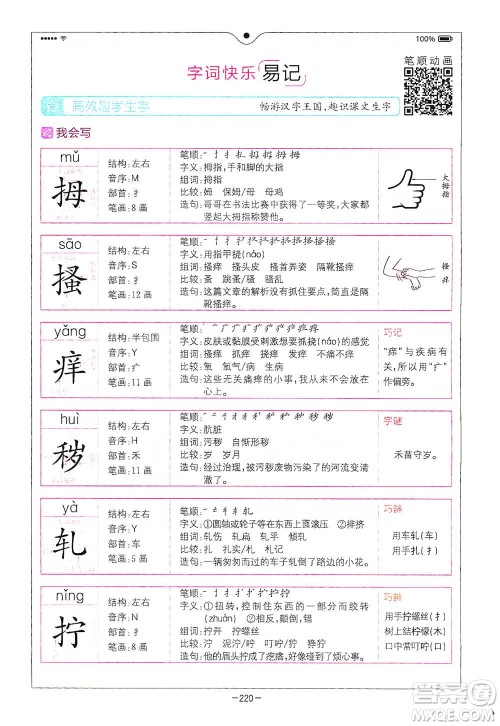 100%
字词快乐 易记
笔顺动画
高效趣学生字
畅游汉字王国,趣识课文生字
我会写
mǔ
拇
结构:左右
音序:M
部首:扌
笔画:8 画
笔顺:
字义:拇指,手和脚的大指
组词:拇指
比较:姆 保姆/母 母鸡
造句:哥哥在书法比赛中获得了一等奖,大家都
竖起大拇指称赞他。
大拇指
sāo
搔
结构:左右
音序:S
部首:扌
笔画:12 画
笔顺:
字义:用指甲挠(náo)
组词:搔痒 搔头皮 搔首弄姿 隔靴搔痒
比较:蚤 跳蚤/骚 骚乱
造句:这篇文章的解析没有抓住要点,简直是隔
靴搔痒。
搔痒
yǎng
痒
结构:半包围
音序:Y
部首:疒
笔画:11 画
笔顺:
字义:皮肤或黏膜受刺激想要抓挠(náo)的感觉
组词:搔痒 刺痒 发痒 不痛不痒
比较:氧 氧气/病 生病
造句:这些不痛不痒的小事,我从来不会放在
心上。
巧记
“痒”与疾病有
关,所以用“疒”
作偏旁。
huì
秽
结构:左右
音序:H
部首:禾
笔画:11 画
笔顺:
字义:肮脏
组词:污秽 自惭形秽
比较:岁 岁月
造句:经过治理,被污秽废物污染了的河流变清
澈了。
字谜
禾苗守岁。
yà
轧
结构:左右
音序:Y
部首:车
笔画:5 画
笔顺:
字义:①圆轴或轮子等在东西上面滚压 ②排挤
组词:碾轧 轧平 倾轧
比较:扎 扎实/札 札记
造句:一辆匆匆而过的马车轧倒了路边的小花。
巧辨
用车轧(车)
用手扎(扌)
nǐng
拧
结构:左右
音序:N
部首:扌
笔画:8 画
笔顺:
字义:①扭转,控制住东西的一部分而绞转
(zhuàn) ②相反,颠倒 ③别扭,抵触
组词:拧开 拧螺丝
比较:泞 泥泞/咛 叮咛/狞 狰狞
造句:他的眉头拧成了疙瘩,好像碰到了烦心事。
巧辨
用手拧螺丝(扌)
树上结柠檬(木)
口中常叮咛(口)
—220—